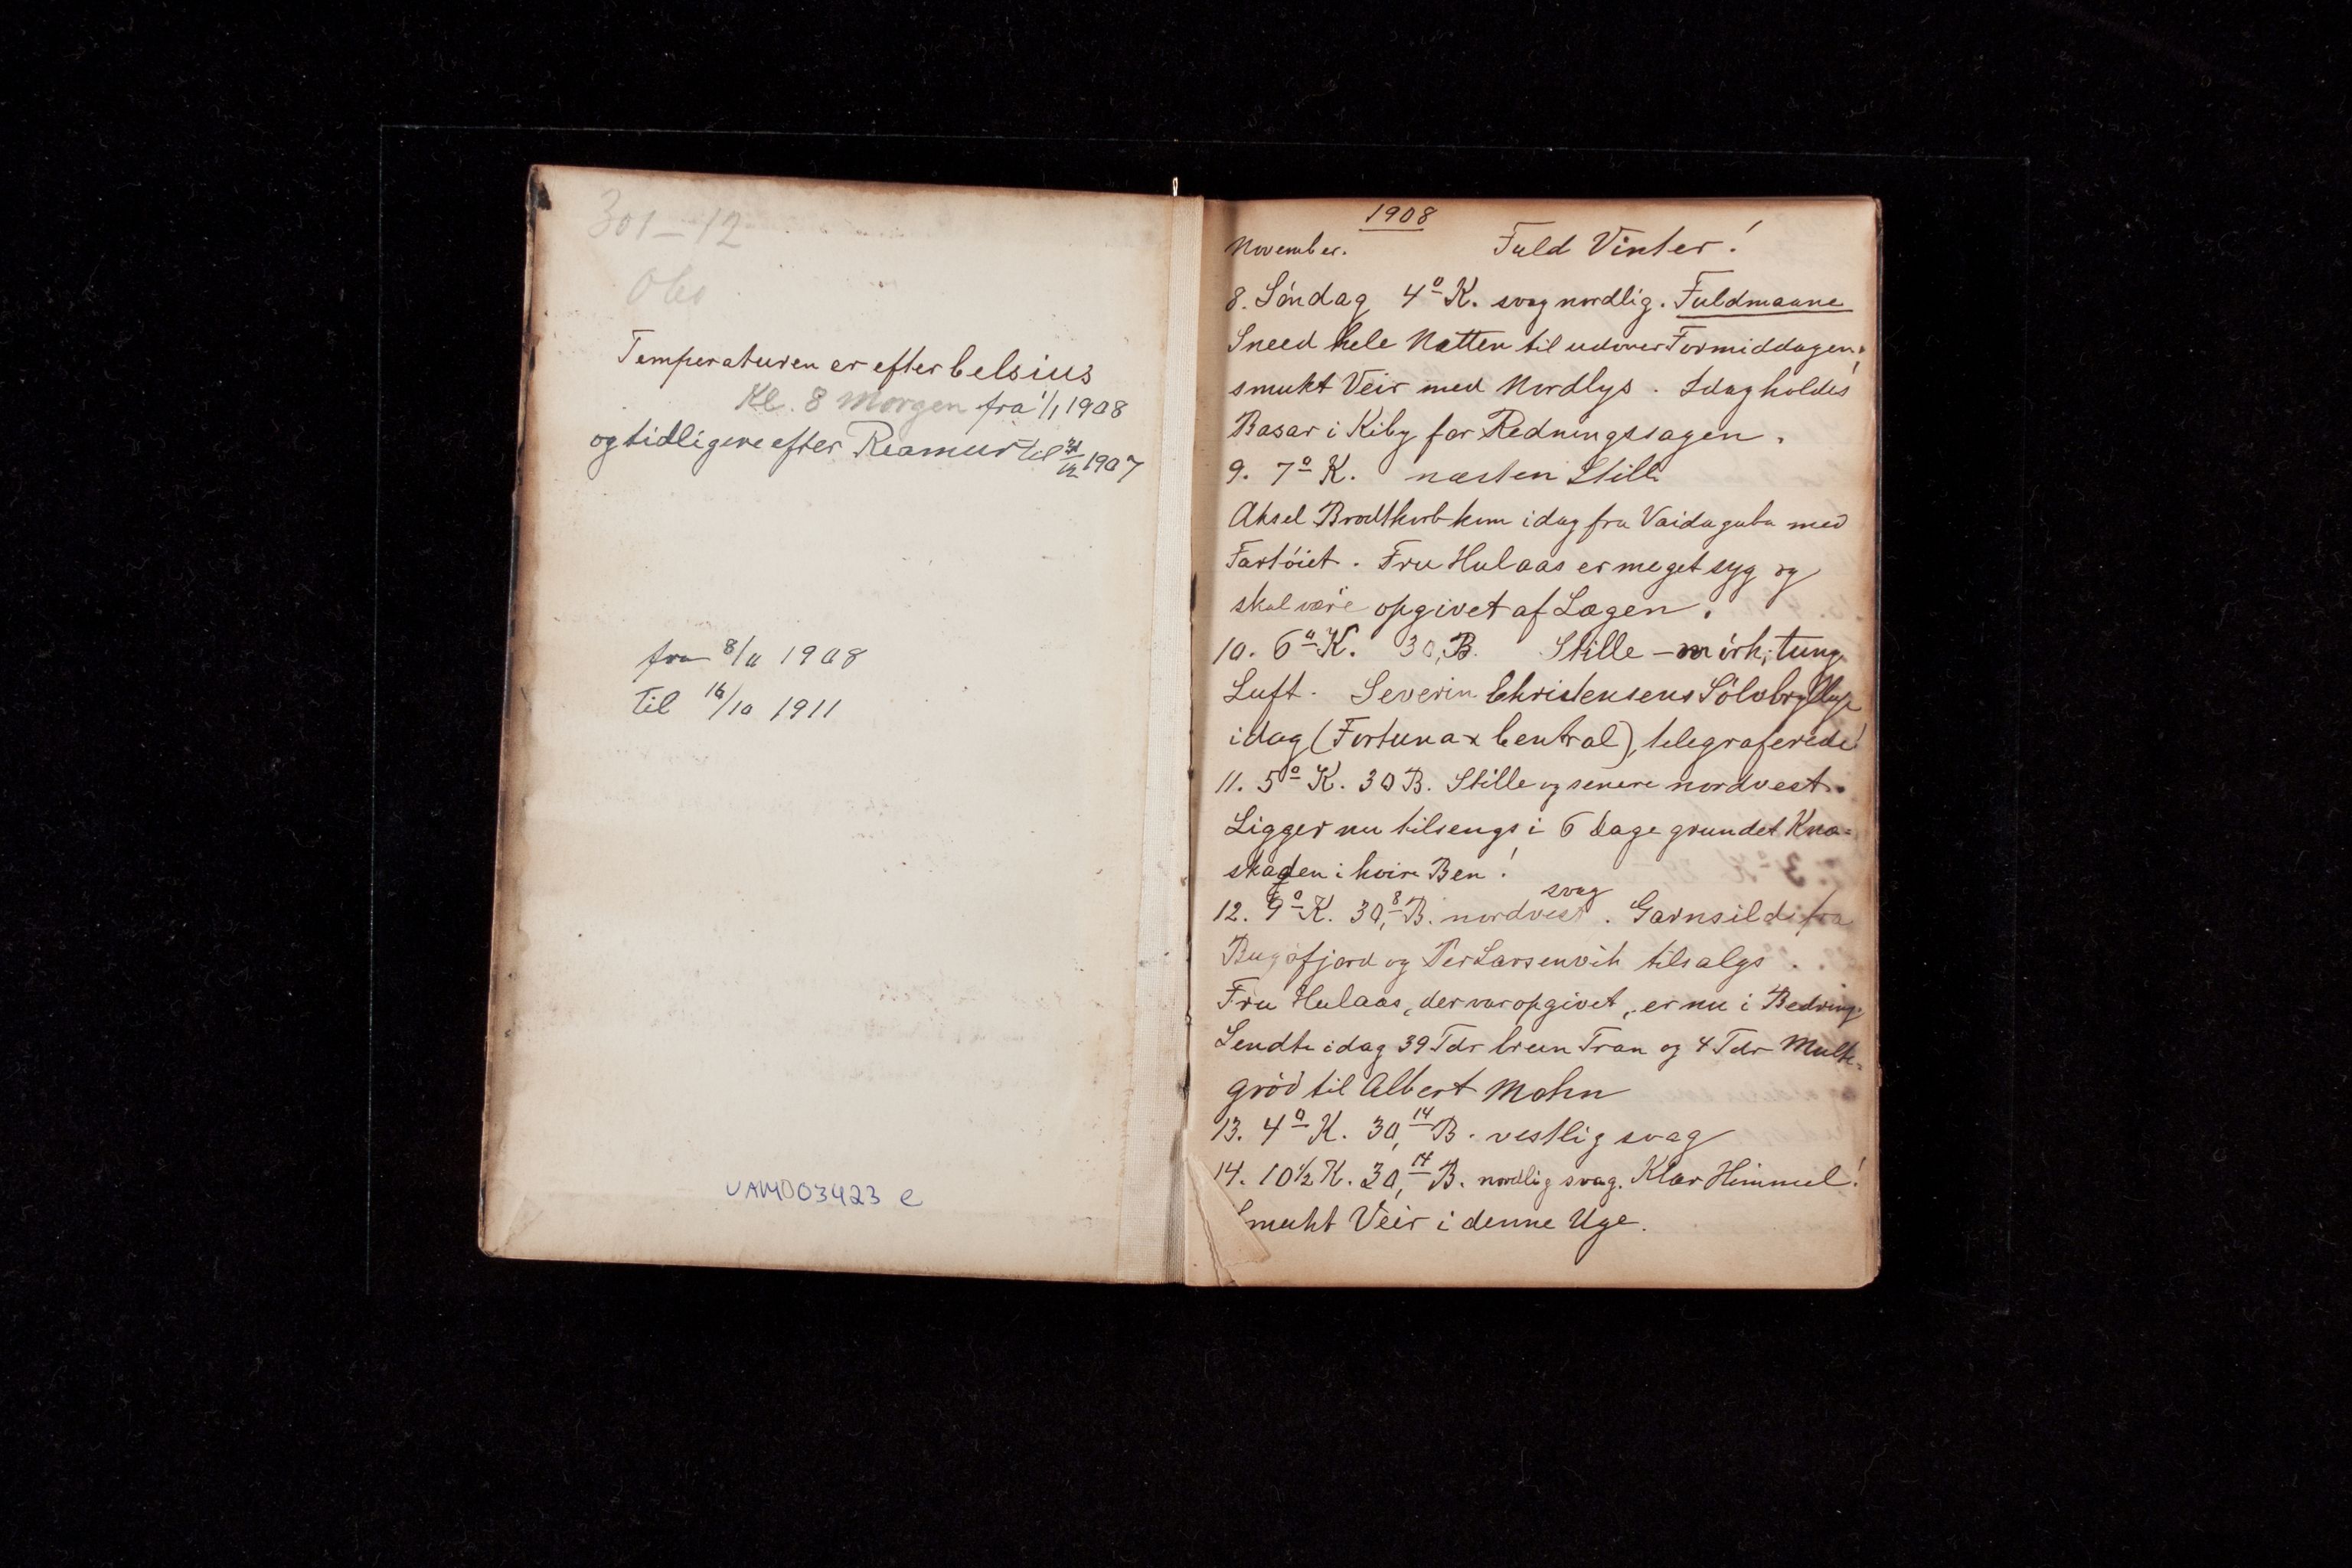 301-12
Temperaturen er efter Celsius
Kl. 8 Morgen fra 1/1 1908
og tidligere efter Reamur til 31/12 1907
fra 8/11 1908
til 16/10 1911
VAM003423 e
1908
November. Fuld Vinter!
8. Söndag 4° K. svag nordlig. Fuldmaane
Sneed hele Natten til udover Formiddagen,
smukt Veir med Nordlys. Idag holdes
Basar i Kiby for Redningssagen.
9. 7° K. næsten Stille
Aksel Brodtkorb kom idag fra Vaidaguba med
Fartöiet. Fru Hulaas er meget syg og
skal være opgivet af Lægen.
10. 6° K. 30, B. Stille - mörk, tung
Luft. Severin Christensens Sölvbryllup
idag (Fortuna x Central), telegraferede!
11. 5° K. 30 B. Stille og senere nordvest.
Ligger nu tilsengs i 6 Dage grundet Knæ=
skaden i höire Ben!
12. 9° K. 30,8 B. nordvest svag. Garnsild ifra
Bugöfjord og Per Larsenvik tilsalgs.
Fru Hulaas, der var opgivet, er nu i Bedring.
Sendte idag 39 Tdr brun Tran og 4 Tdr Multe-
gröd til Albert Mohn
13. 4° K. 30,14 B. vestlig svag
14. 10½ K. 30,14 B. nordlig svag. Klar Himmel!
Smukt Veir i denne Uge.